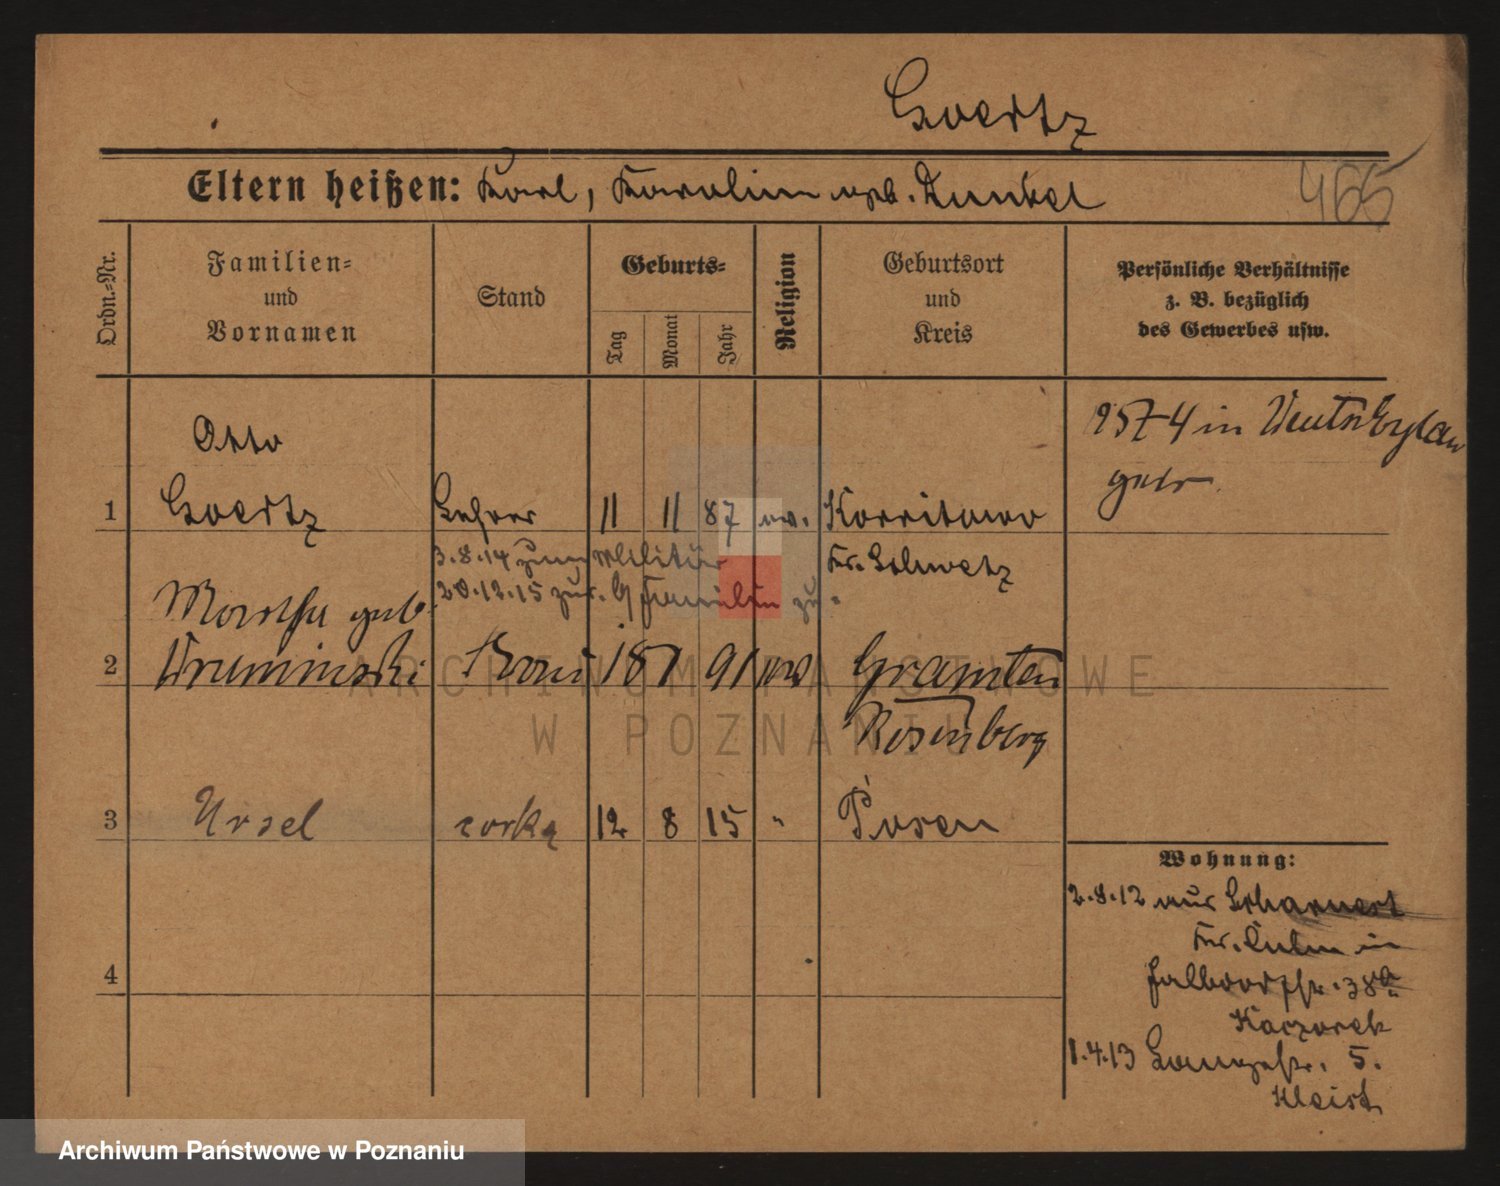 Goertz
465
Eltern heißen: Karl, Karolina geb. Dunkel
Ordn.-Nr.
Familien-
und
Vornamen
Stand
Geburts-
Tag
Monat
Jahr
Religion
Geburtsort
und
Kreis
Persönliche Verhältnisse
z. B. bezüglich
des Gewerbes usw.
in Deutsch Eylau
Otto
1 Goertz Lehrer 11 11 87 ev. Korritowo
3.8.14 zum Militär Kr. Schwetz
Martha geb.
20.12.15 zur. Familie
2 Frau 18 1 91 ev Gramten
Rosenberg
3 Ursel corka 12 8 15 " Posen
Wohnung:
2.8.12 aus Scharnert
Kr. Culm in
38a
Kaczorek
4
1.4.13 Langestr. 5.
Kleist
ARCHIWUM PAŃSTWOWE
W POZNANIU
Archiwum Państwowe w Poznaniu